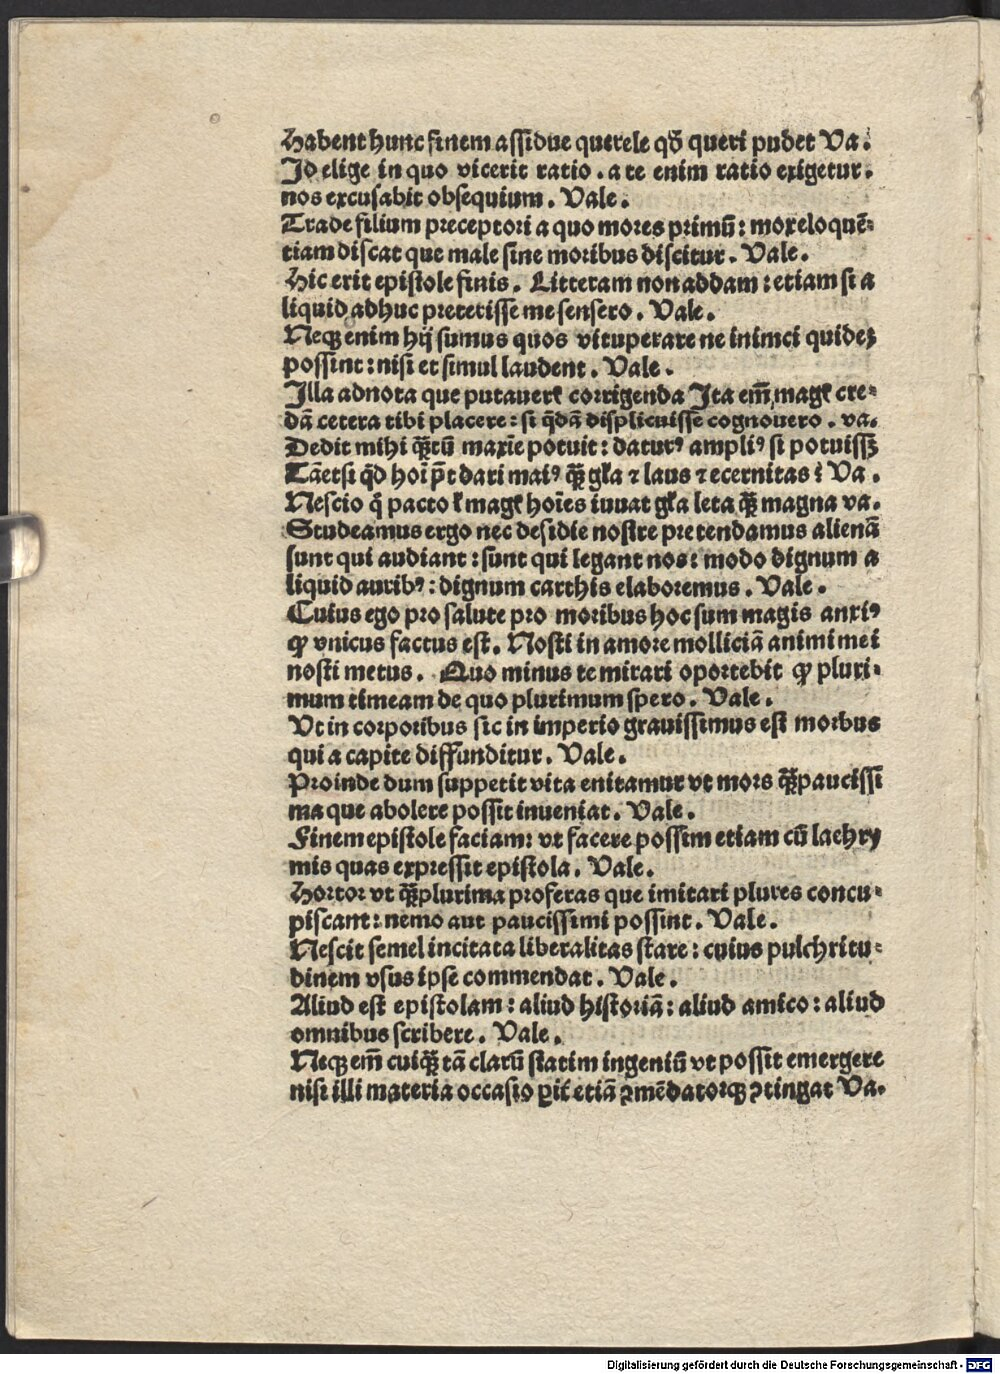 Habent hunc finem assidue querele qđ queri pudet Va.
Id elige in quo vicerit ratio . a te enim ratio exigetur.
nos excusabit obsequium . Vale .
Trade filium preceptori a quo mores primū : mox eloquē⸗
tiam discat que male sine moribus discitur . Vale .
Hic erit epistole finis . Litteram non addam : etiam si a
liquid adhuc preterisse me sensero . Vale .
Neqꝫ enim hij sumus quos vituperare ne inimci quideꝫ
possint : nisi et simul laudent . Vale .
Illa adnota que putauerꝭ corrigenda Ita em̄ magꝭ cre⸗
dā cetera tibi placere : si q̄dā displicuisse cognouero . va.
Dedit mihi q̄ꝫtū maxīe potuit : daturꝰ ampliꝰ si potuissꝫ
Tāetsi qͥd hoī p̄t dari maiꝰ q̄ꝫ gl̄a ⁊ laus ⁊ ecernitas ⁝ Va .
Nescio qͦ pacto ł magꝭ hoīes iuuat gl̄a leta q̄ꝫ magna va.
Studeamus ergo nec desidie nostre pretendamus alienā
sunt qui audiant : sunt qui legant nos : modo dignum a
liquid auribꝰ : dignum carthis elaboremus . Vale .
Cuius ego pro salute pro moribus hoc sum magis anxiꝰ
ꝙ vnicus factus est . Nosti in amore molliciā animi mei
nosti metus . Quo minus te mirari oportebit ꝙ pluri⸗
mum timeam de quo plurimum spero . Vale .
Vt in corporibus sic in imperio grauissimus est morbus
qui a capite diffunditur . Vale .
Proinde dum suppetit vita enitamur vt mors q̄ꝫpaucissi
ma que abolere possit inueniat . Vale .
Finem epistole faciam : vt facere possim etiam cū lachry
mis quas expressit epistola . Vale .
Hortor vt q̄ꝫplurima proferas que imitari plures concu⸗
piscant : nemo aut paucissimi possint . Vale .
Nescit semel incitata liberalitas stare : cuius pulchritu⸗
dinem vsus ipse commendat . Vale .
Aliud est epistolam : aliud historiā : aliud amico : aliud
omnibus scribere . Vale .
Neqꝫ em̄ cuiqꝫ tā clarū statim ingeniū vt possit emergere
nisi illi materia occasio etiā ꝯmēdatorqꝫ ꝯtingat Va.
Digitalisierung gefördert durch die Deutsche Forschungsgemeinschaft - DFG